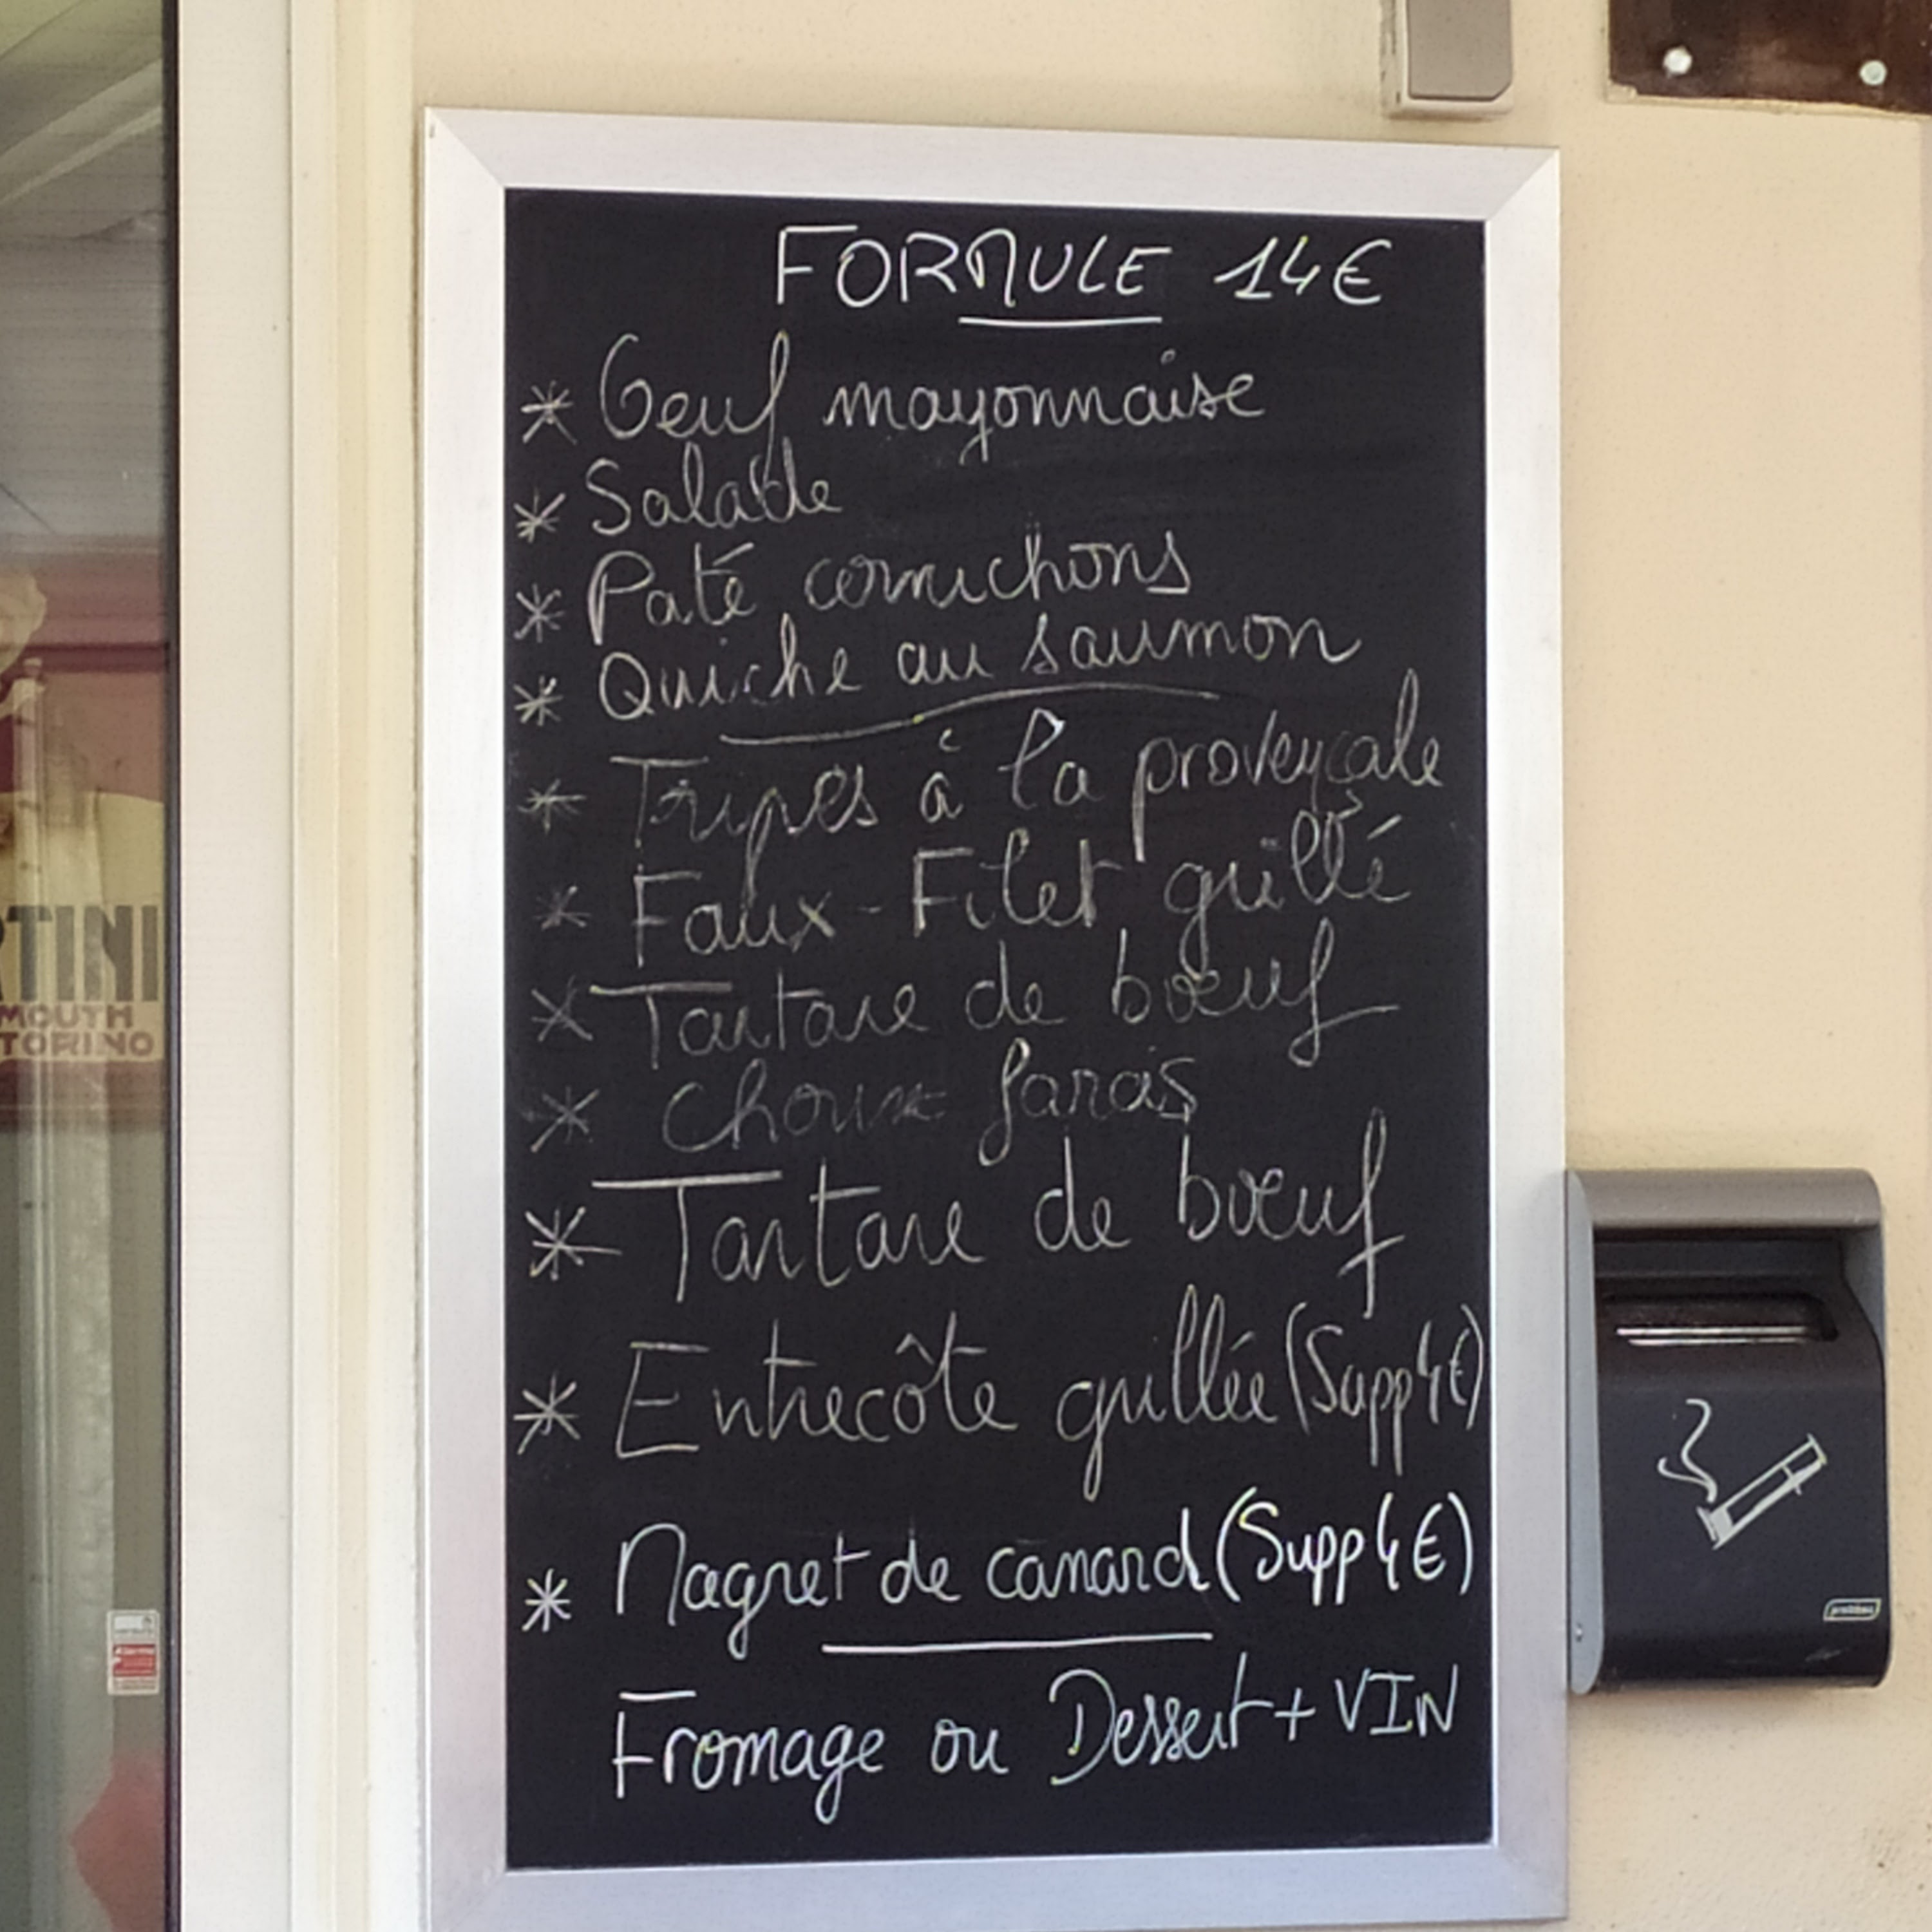 FORMULE 14€
* Oeuf mayonnaise
* Salade
* Paté cornichons
* Quiche au saumon
* Tripes à la provençale
* Faux-Filet grillé
* Tartare de bœuf
* Choux farcis
* Tartare de bœuf
* Entrecôte grillée (Supp 4€)
* Magret de canard (Supp 4€)
Fromage ou Dessert + VIN
RTINI
MOUTH
TORINO